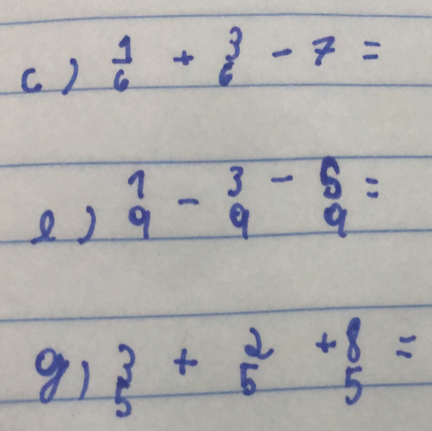 c) 1/6 + 3/6 - 7 =
e) 1/9 - 3/9 - 5/9 =
g) 3/5 + 2/5 + 8/5 =